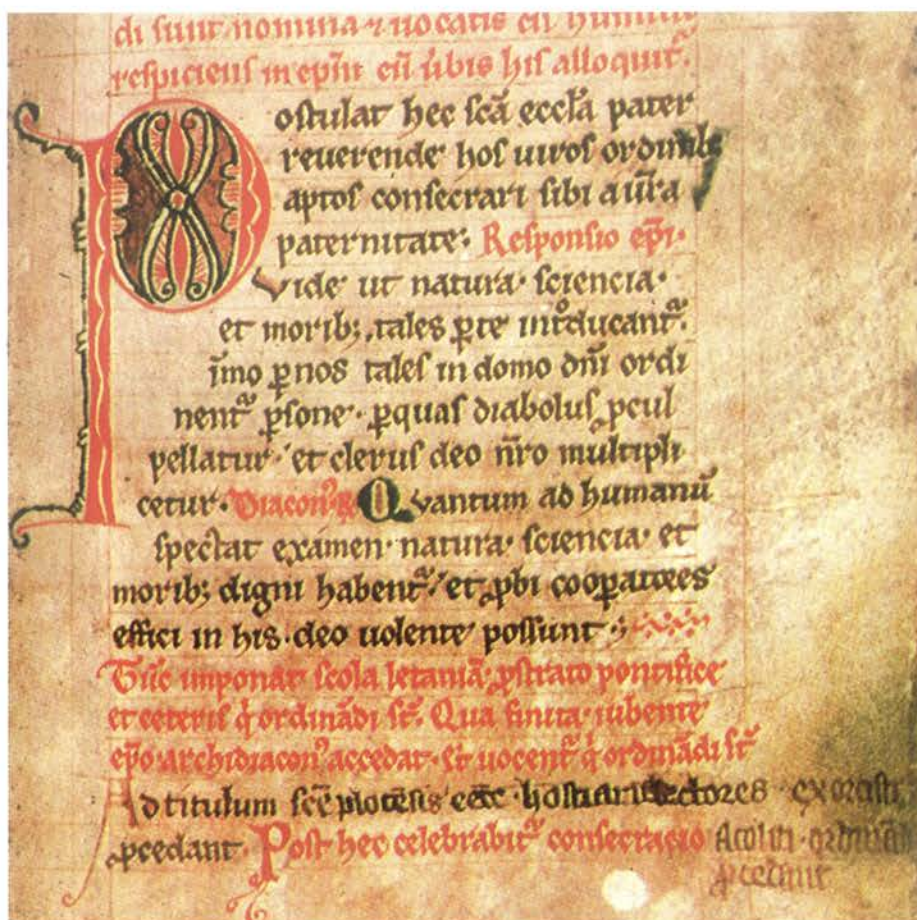 di sunt nomina ⁊ uocatis eis humili
respiciens in ep̄m eū ūbis his alloquit᷑.
Postulat hec sc̄a eccl̄a pater
reuerende hos uiros ordinib;
aptos consecrari sibi a ur̄a
paternitate. Responsio ep̄i.
Vide ut natura. sciencia.
et morib; tales ꝑ te int°ducant᷑.
īmo ꝑ nos tales in domo dn̄i ordi
nent᷑ ꝑsone. ꝑ quas diabolus ꝓcul
pellatur. et clerus deo nr̄o multipli
cetur. Diacon⁹ R̄ Quantum ad humanū
spectat examen. natura. sciencia. et
morib; digni habent᷑. et ꝓbi cooꝑatores
effici in his. deo uolente possunt.
Tūc imponat scola letaniā. ꝓstrato pontifice
et ceteris q̇ ordinādi st̄. Qua finita. iubente
ep̄o archidiacon⁹ accedat. et uocent᷑ q̇ ordinādi st̄
Ad titulum sc̄e hostiarii lectores exorcisti
ꝓcedant. Post hec celebrabit᷑ consecracio Acoliti.
ꝓcedant